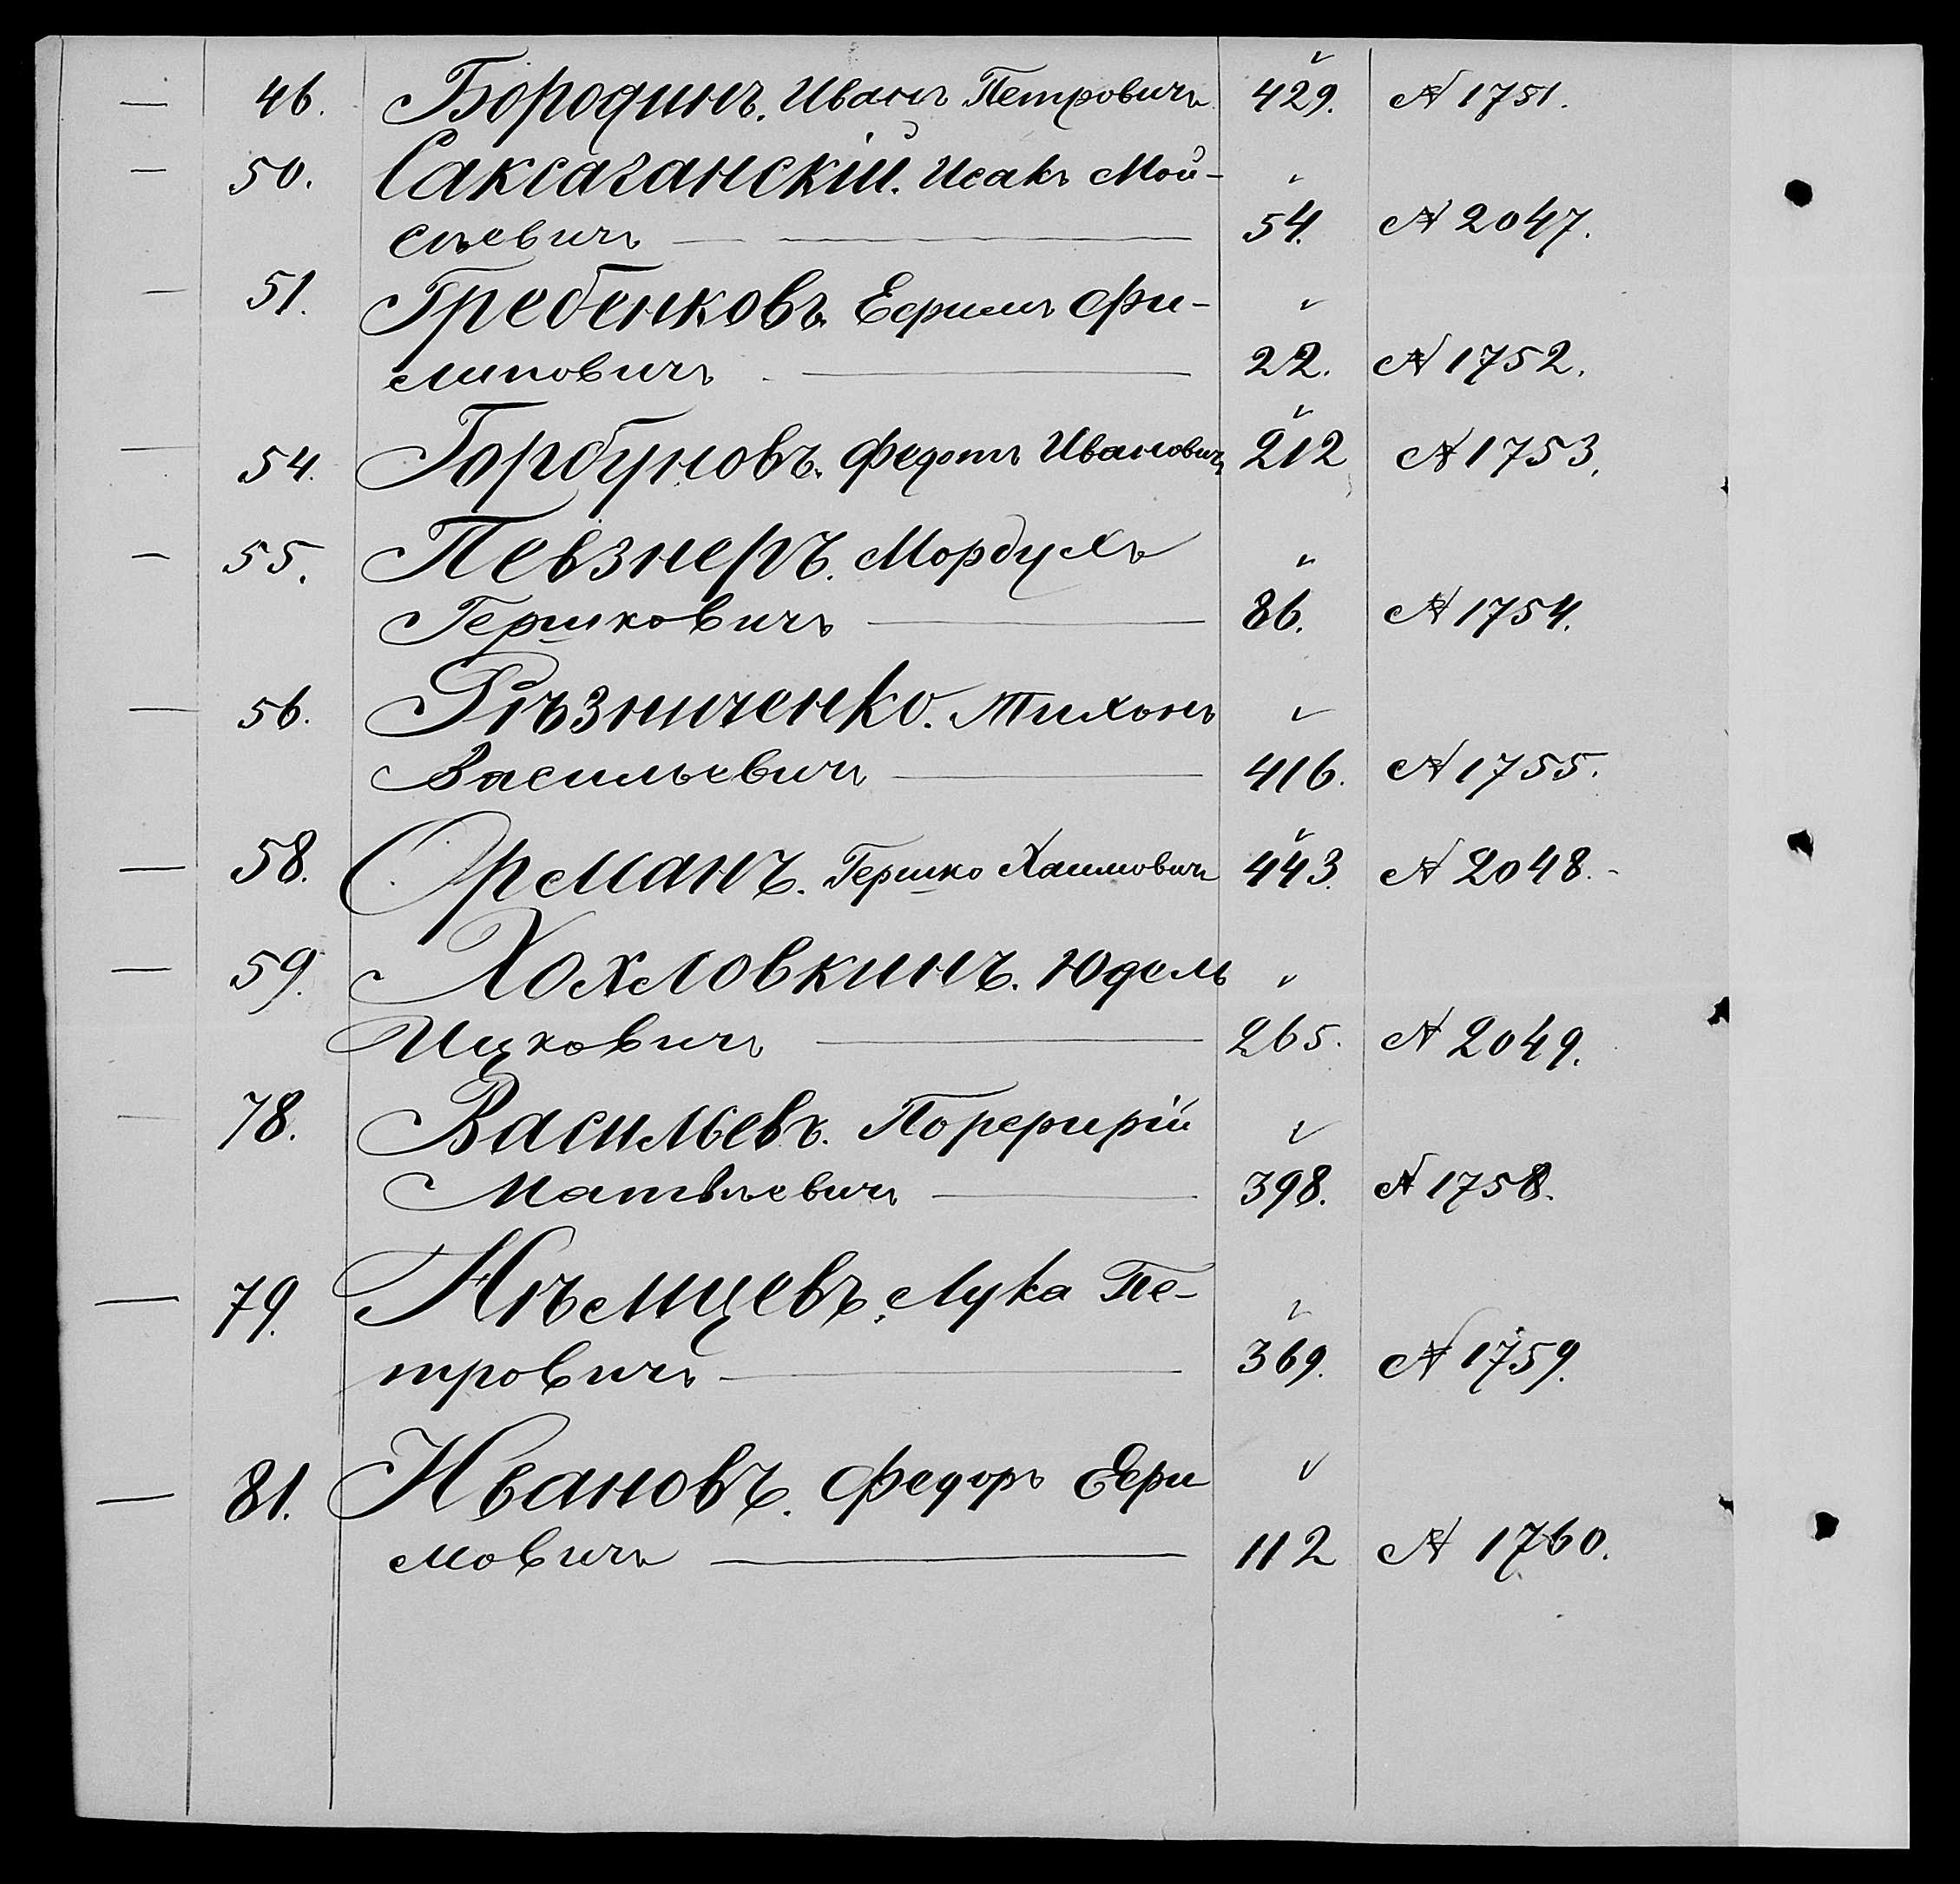 — 46. Бородинъ. Иванъ Петровичъ 429. № 1751.
— 50. Саксаганскій. Исакъ Мой-
сѣевичъ — 54. № 2047.
— 51. Гребенковъ. Ефимъ Фи-
липовичъ — 22. № 1752.
— 54. Горбуновъ. Федотъ Ивановичъ 212 № 1753.
— 55. Певзнеръ. Мордухъ
Гершковичъ — 86. № 1754.
— 56. Рѣзниченко. Тихонъ
Васильевичъ — 416. № 1755.
— 58. Орманъ. Гершко Хаимовичъ 443. № 2048.
— 59. Хохловкинъ. Юдель
Ицковичъ — 265. № 2049.
— 78. Васильевъ. Порфирій
Матвѣевичъ — 398. № 1758.
— 79. Нѣмцевъ. Лука Пе-
тровичъ — 369. № 1759.
— 81. Ивановъ. Федоръ Ефи
мовичъ — 112 № 1760.